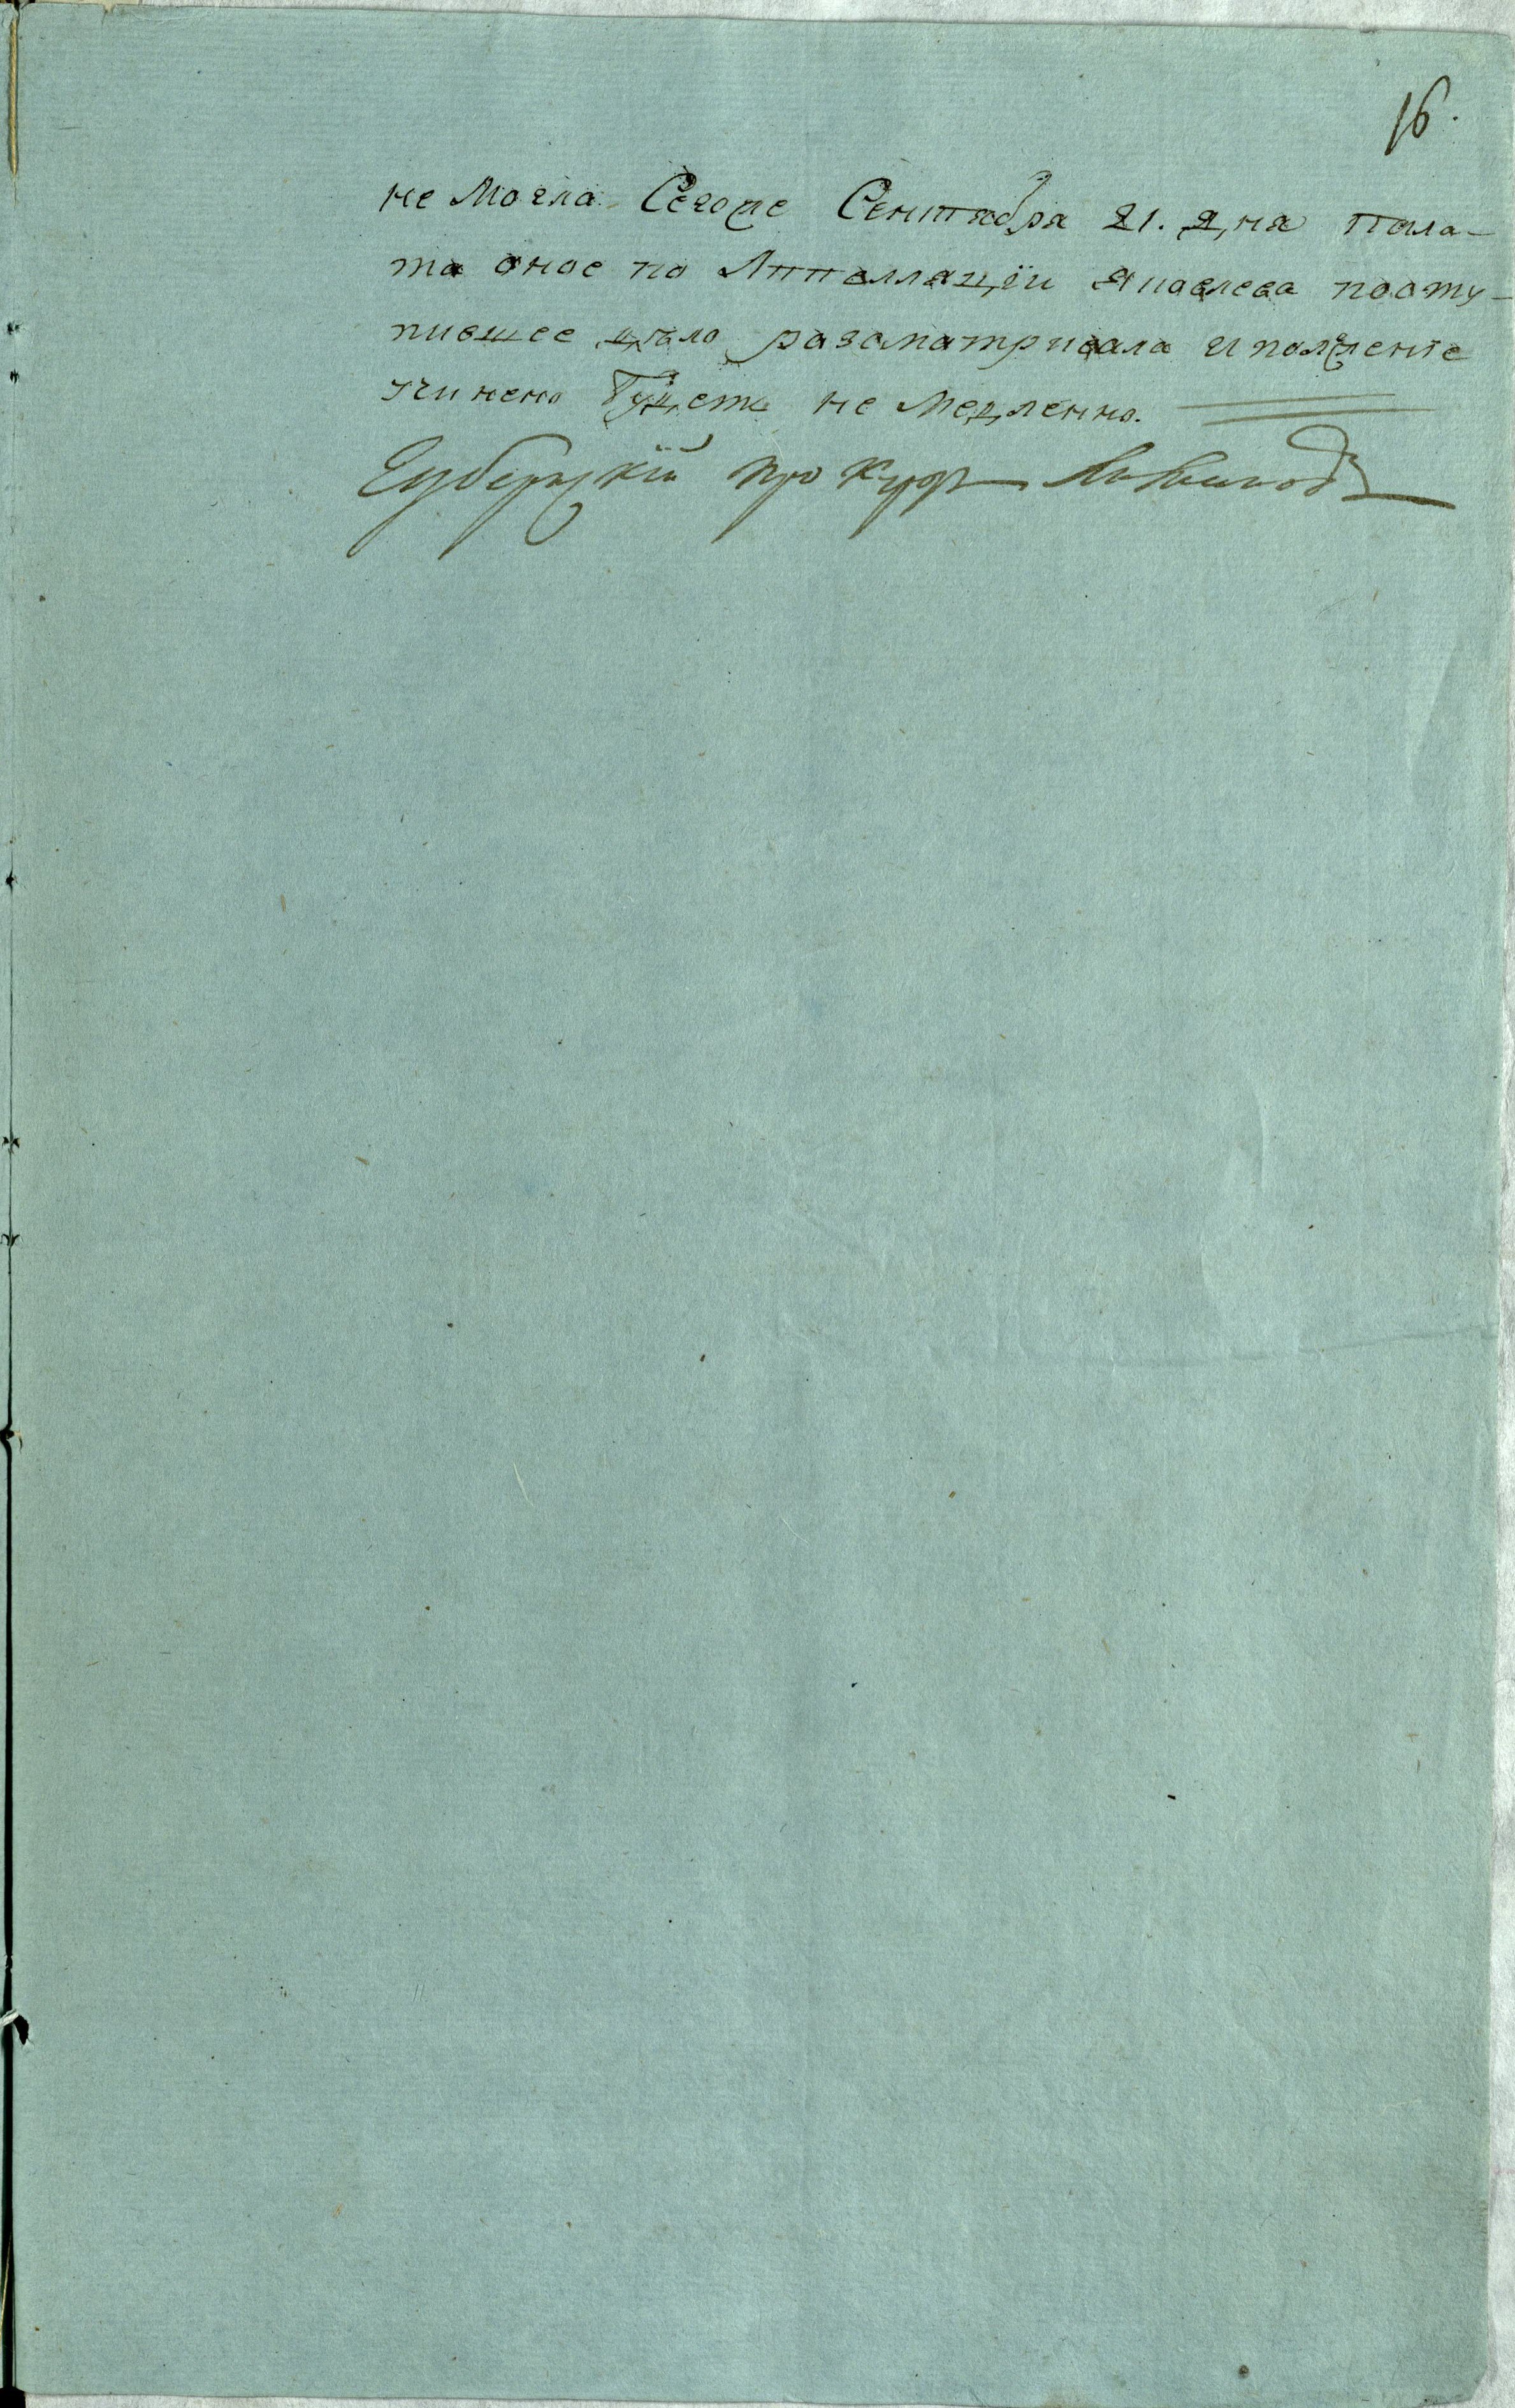 16.
не могла. Сегоже Сентября 21. дня пала-
та оное по Аппелляцїи Яковлева посту-
пившее дѣло разсматривала и положенїе
учинено будетъ не медленно.
Губернскїй прокуроръ